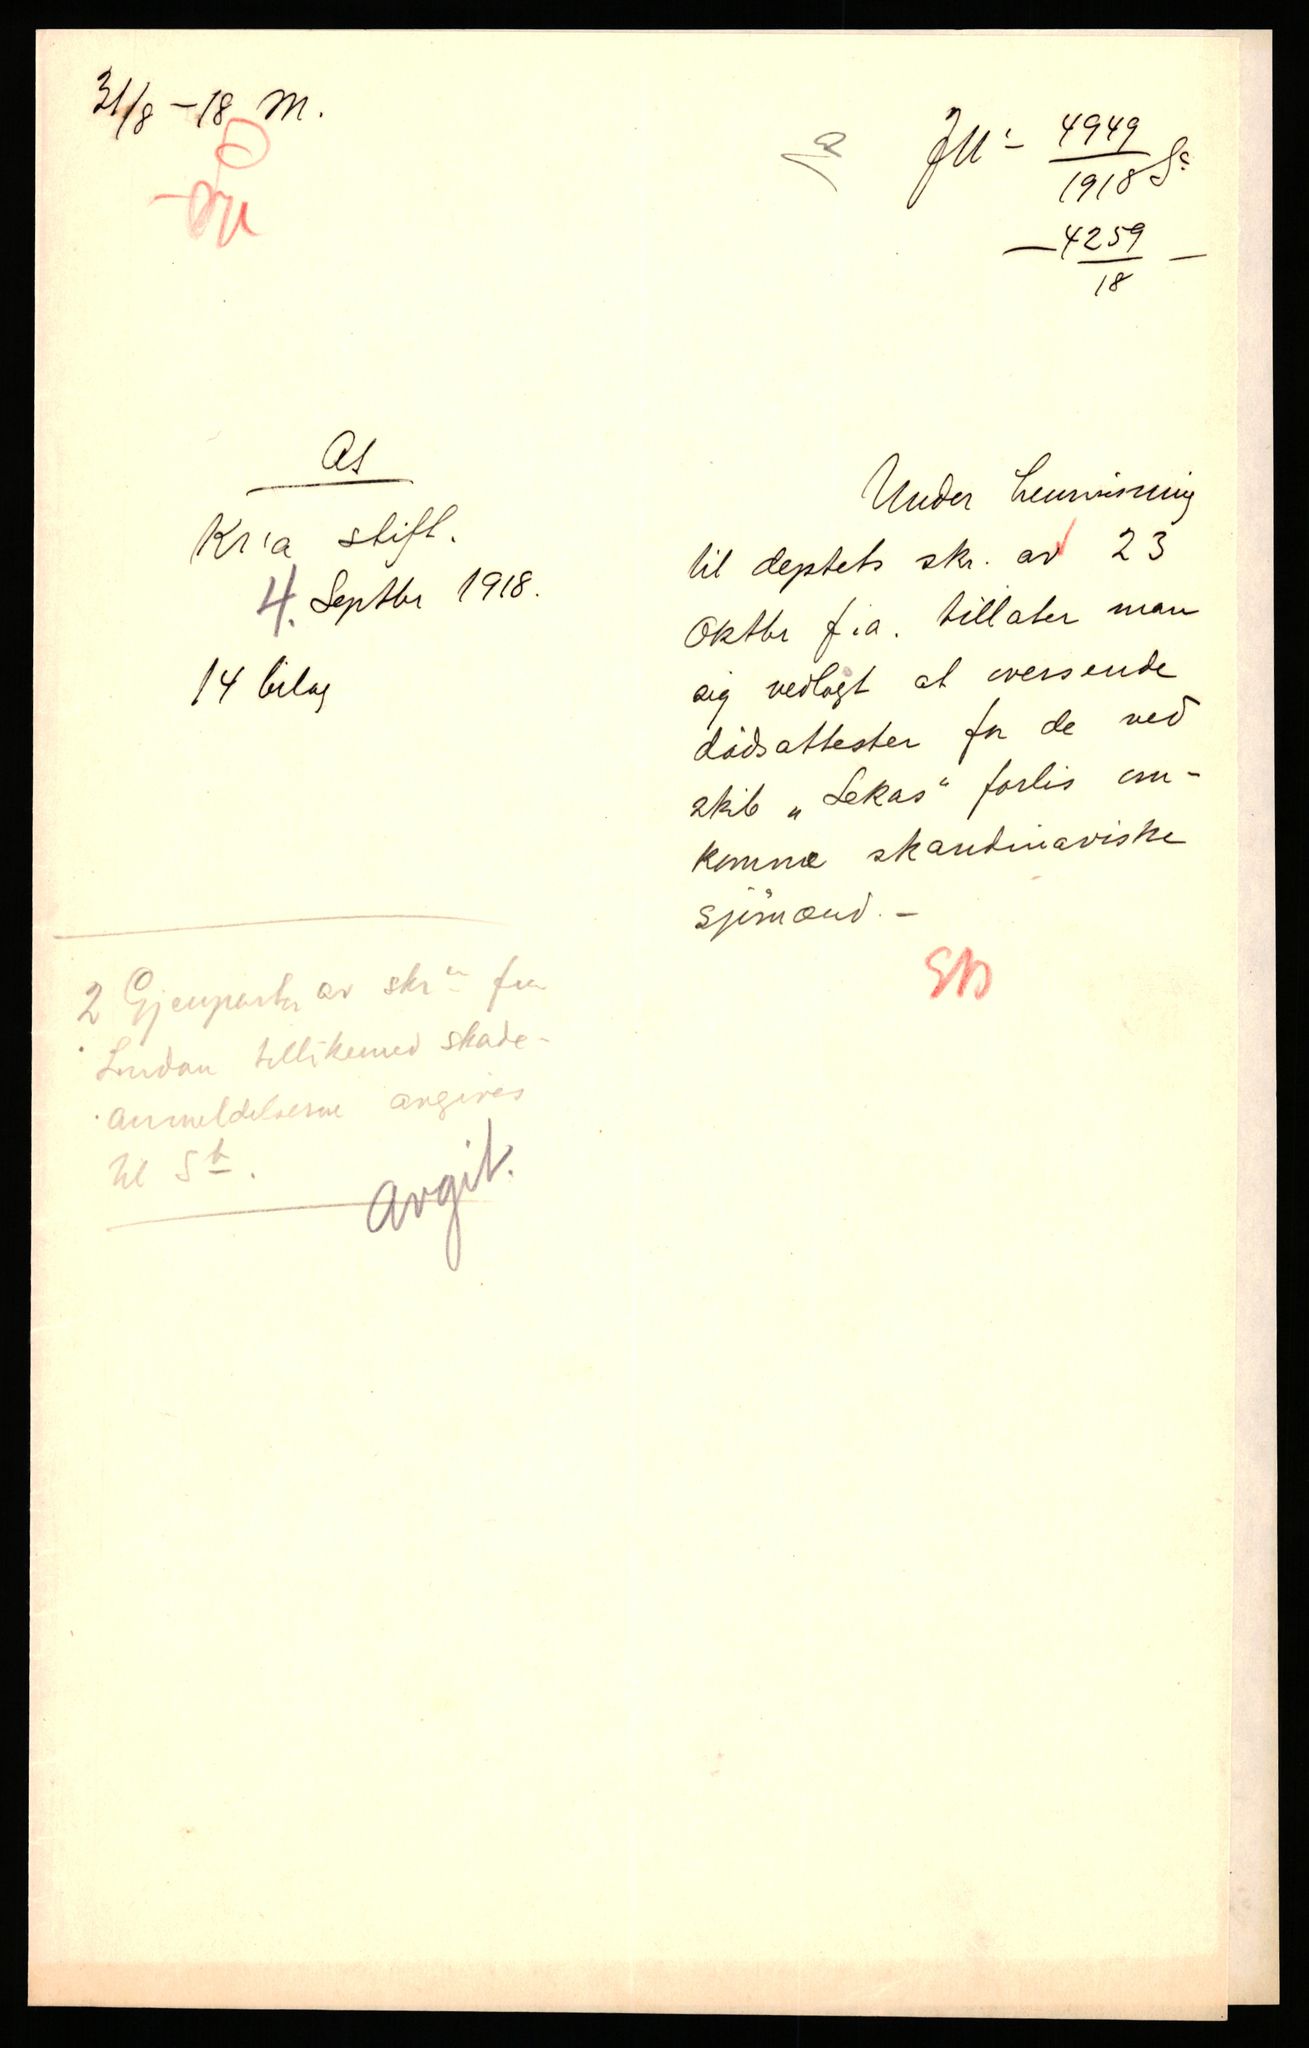 31/8 - 18 M.
4949
1918
4259
18
As
Kr:a stift.
4. Septbr 1918.
14 bilag
Under henvisning
til deptets skr. av 23
Oktbr f.a. tillater man
sig vedlagt at oversende
dödsattester for de ved
skib „Lekas" forlis om-
komne skandinaviske
sjömænd. -
2 Gjenparter av skrn fra
London tillikemed skade-
anmeldelserne avgives
til
avgit.